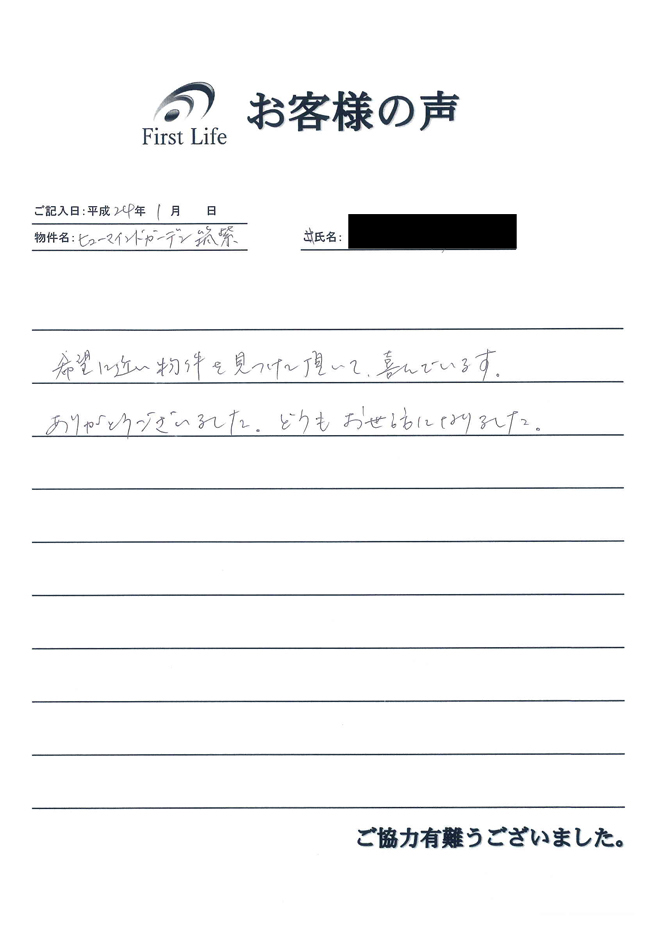 First Life
お客様の声
ご記入日:平成24年 1月 日
物件名:ヒューマインドガーデン筑紫
氏名:
希望に近い物件を見つけて頂いて、喜んでいます。
ありがとうございました。どうもお世話になりました。
ご協力有難うございました。